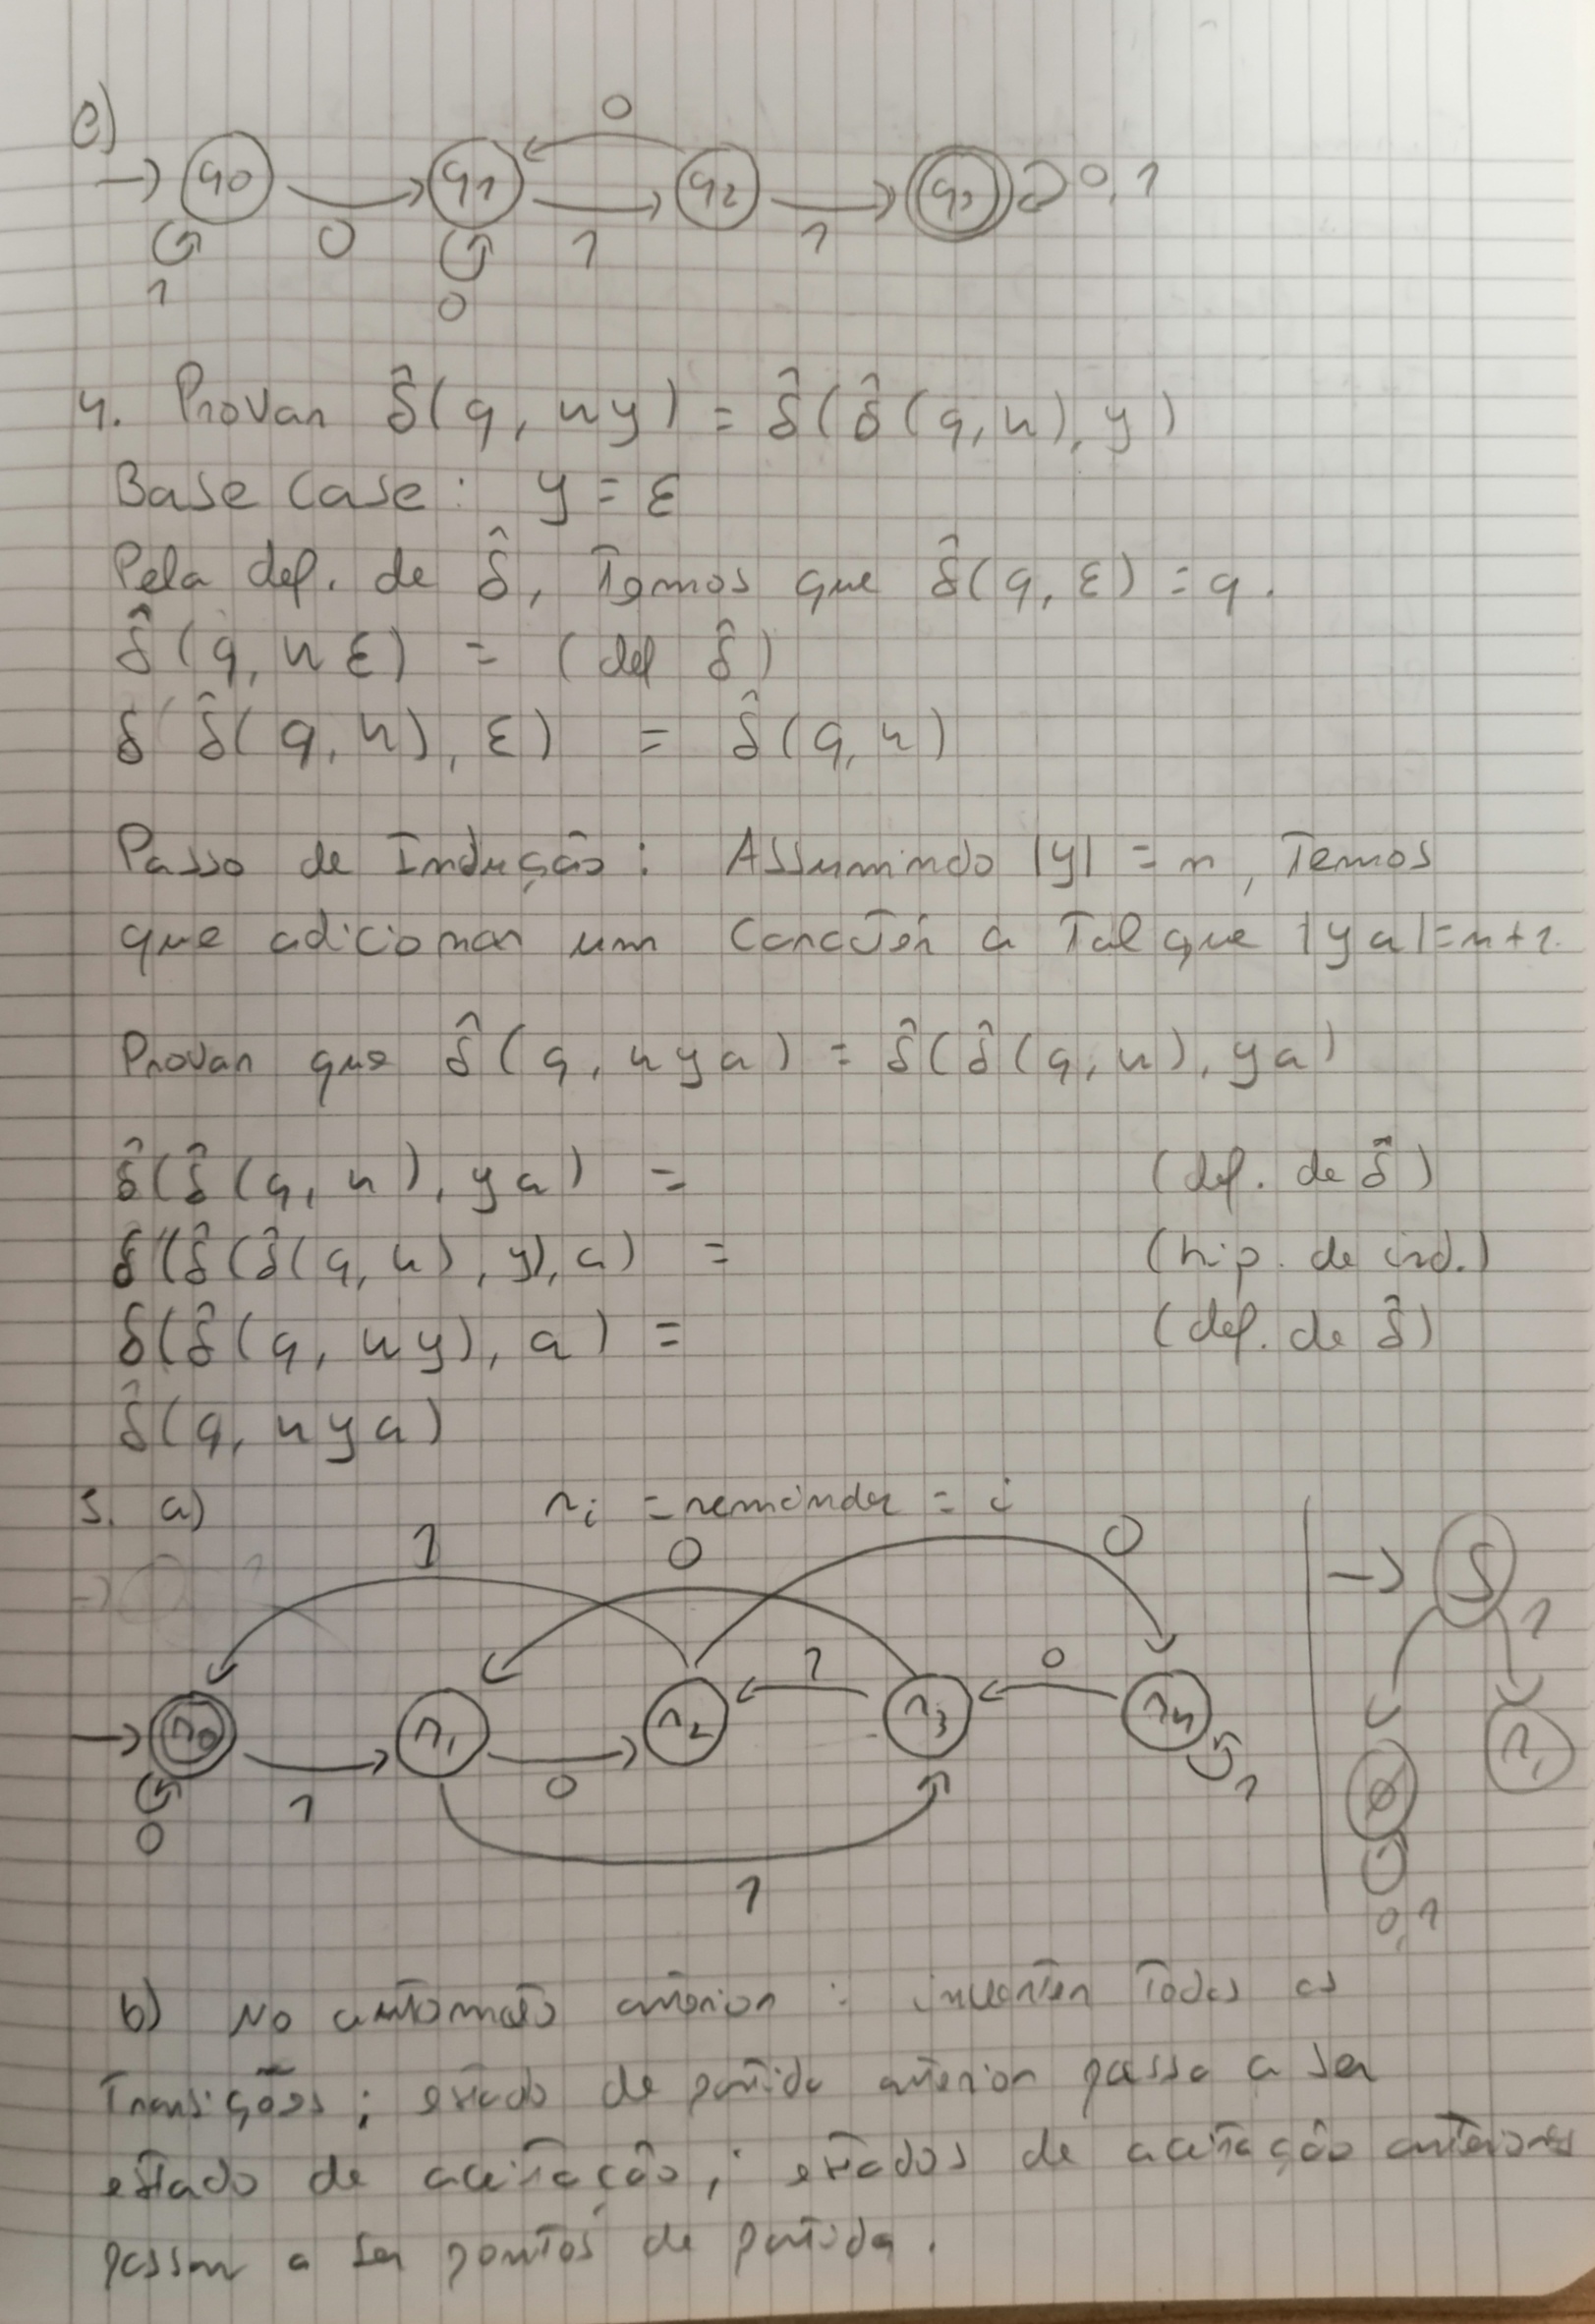 e)
→ q0 q1 q2 q3 0,1
0
0 1 1
1 0
4. Provar δ̂(q, xy) = δ̂(δ̂(q,x), y)
Base Case: y = ε
Pela def. de δ̂, Temos que δ̂(q, ε) = q.
δ̂(q, xε) = (def δ̂)
δ(δ̂(q, x), ε) = δ̂(q, x)
Passo de Indução: Assumindo |y| = n, Temos
que adicionar um caractér a Tal que |ya|=n+1.
Provar que δ̂(q, xya) = δ̂(δ̂(q, x), ya)
δ̂(δ̂(q, x), ya) = (def. de δ̂)
δ(δ̂(δ̂(q, x), y), a) = (hip. de ind.)
δ(δ̂(q, xy), a) = (def. de δ̂)
δ̂(q, xya)
5. a) ri = remainder = i
1 0 0 → S
1
1 0
→ r0 r1 r2 r3 r4 r1
0 1 0 1 ∅
1 0,1
b) No automato anterior: inverter Todas as
Transições; estado de partida anterior passa a ser
estado de aceitação; estados de aceitação anteriores
passam a ser pontos de partida.